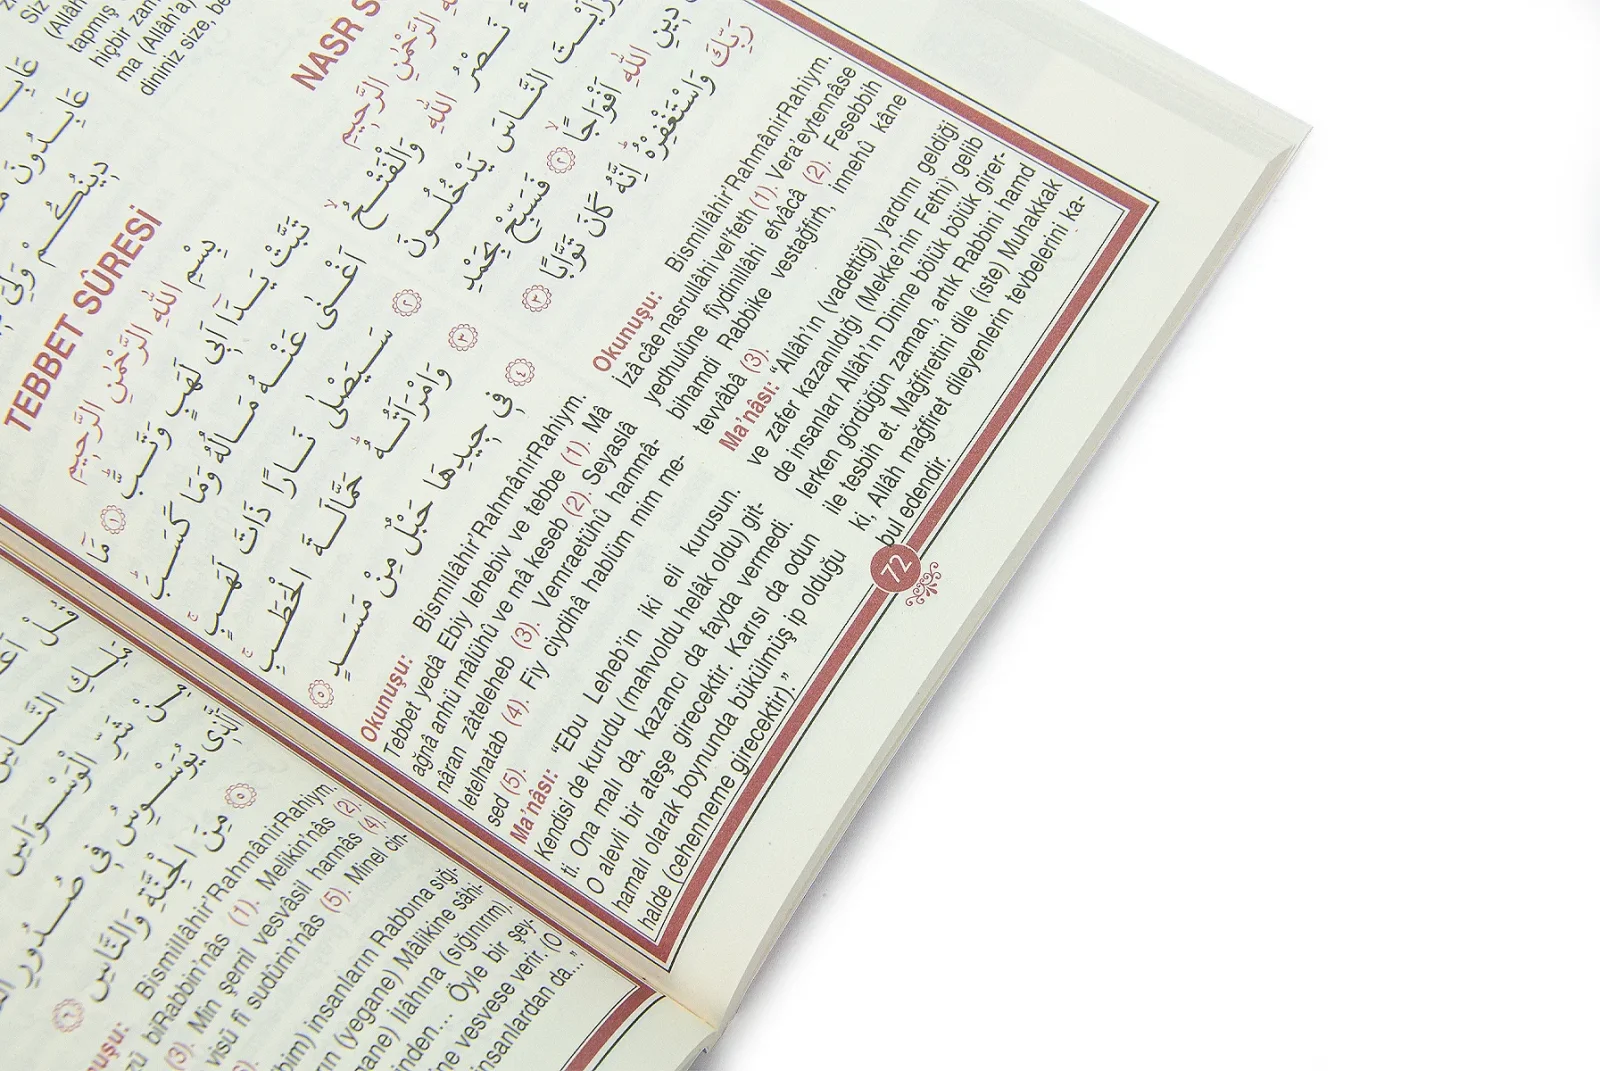 Siz
(Allâh'
tapmış
hiçbir zam
ma (Allâh'a)
dininiz size, be
عَابِدُونَ
دِينُكُمْ وَلِيَ
NASR S
الرَّحْمٰنِ الرَّحِيمِ
نَصْرُ اللّٰهِ وَالْفَتْحُ
رَاَيْتَ النَّاسَ يَدْخُلُونَ
دِينِ اللّٰهِ اَفْوَاجًا ٢ فَسَبِّحْ بِحَمْدِ
رَبِّكَ وَاسْتَغْفِرْهُ اِنَّهُ كَانَ تَوَّابًا ٣
Okunuşu: Bismillâhir'RahmânirRahiym.
İzâ câe nasrullâhi vel'feth (1). Vera'eytennâse
yedhulûne fîydinillâhi efvâcâ (2). Fesebbih
bihamdi Rabbike vestağfirh, innehû kâne
tevvâbâ (3).
Ma'nâsı: "Allâh'ın (vadettiği) yardımı geldiği
ve zafer kazanıldığı (Mekke'nin Fethi) gelib
de insanları Allâh'ın Dinine bölük bölük girer-
lerken gördüğün zaman, artık Rabbini hamd
ile tesbih et. Mağfiretini dile (iste) Muhakkak
ki, Allâh mağfiret dileyenlerin tevbelerini ka-
bul edendir.
TEBBET SÛRESİ
بِسْمِ اللّٰهِ الرَّحْمٰنِ الرَّحِيمِ
تَبَّتْ يَدَا اَبِى لَهَبٍ وَتَبَّ ١ مَا
اَغْنٰى عَنْهُ مَالُهُ وَمَا كَسَبَ
٢ سَيَصْلٰى نَارًا ذَاتَ لَهَبٍ
٣ وَامْرَاَتُهُ حَمَّالَةَ الْحَطَبِ
٤ فِى جِيدِهَا حَبْلٌ مِنْ مَسَدٍ ٥
Okunuşu: Bismillâhir'RahmânirRahiym.
Tebbet yedâ Ebiy lehebiv ve tebbe (1). Mâ
ağnâ anhü mâlühû ve mâ keseb (2). Seyaslâ
nâran zâteleheb (3). Vemraetühû hammâ-
letelhatab (4). Fiy ciydihâ hablüm mim me-
sed (5).
Ma'nâsı: "Ebu Leheb'in iki eli kurusun.
Kendisi de kurudu (mahvoldu helâk oldu) git-
ti. Ona malı da, kazancı da fayda vermedi.
O alevli bir ateşe girecektir. Karısı da odun
hamalı olarak boynunda bükülmüş ip olduğu
halde (cehenneme girecektir)."
72
النَّاسِ
مِنْ شَرِّ الْوَسْوَاسِ
الَّذِى يُوَسْوِسُ فِى صُدُورِ
٥ مِنَ الْجِنَّةِ وَالنَّاسِ ٦
nuşu: Bismillâhir'RahmânirRahiym.
zü biRabbin'nâs (1). Melikin'nâs (2).
(3). Min şerril vesvâsil hannâs (4).
visü fî sudûrin'nâs (5). Minel cin-
bim) insanların Rabbına sığı-
rın (yegane) Mâlikine sâhi-
gane) İlâhına (sığınırım).
inden... Öyle bir şey-
ine vesvese verir. (O
insanlardan da..."